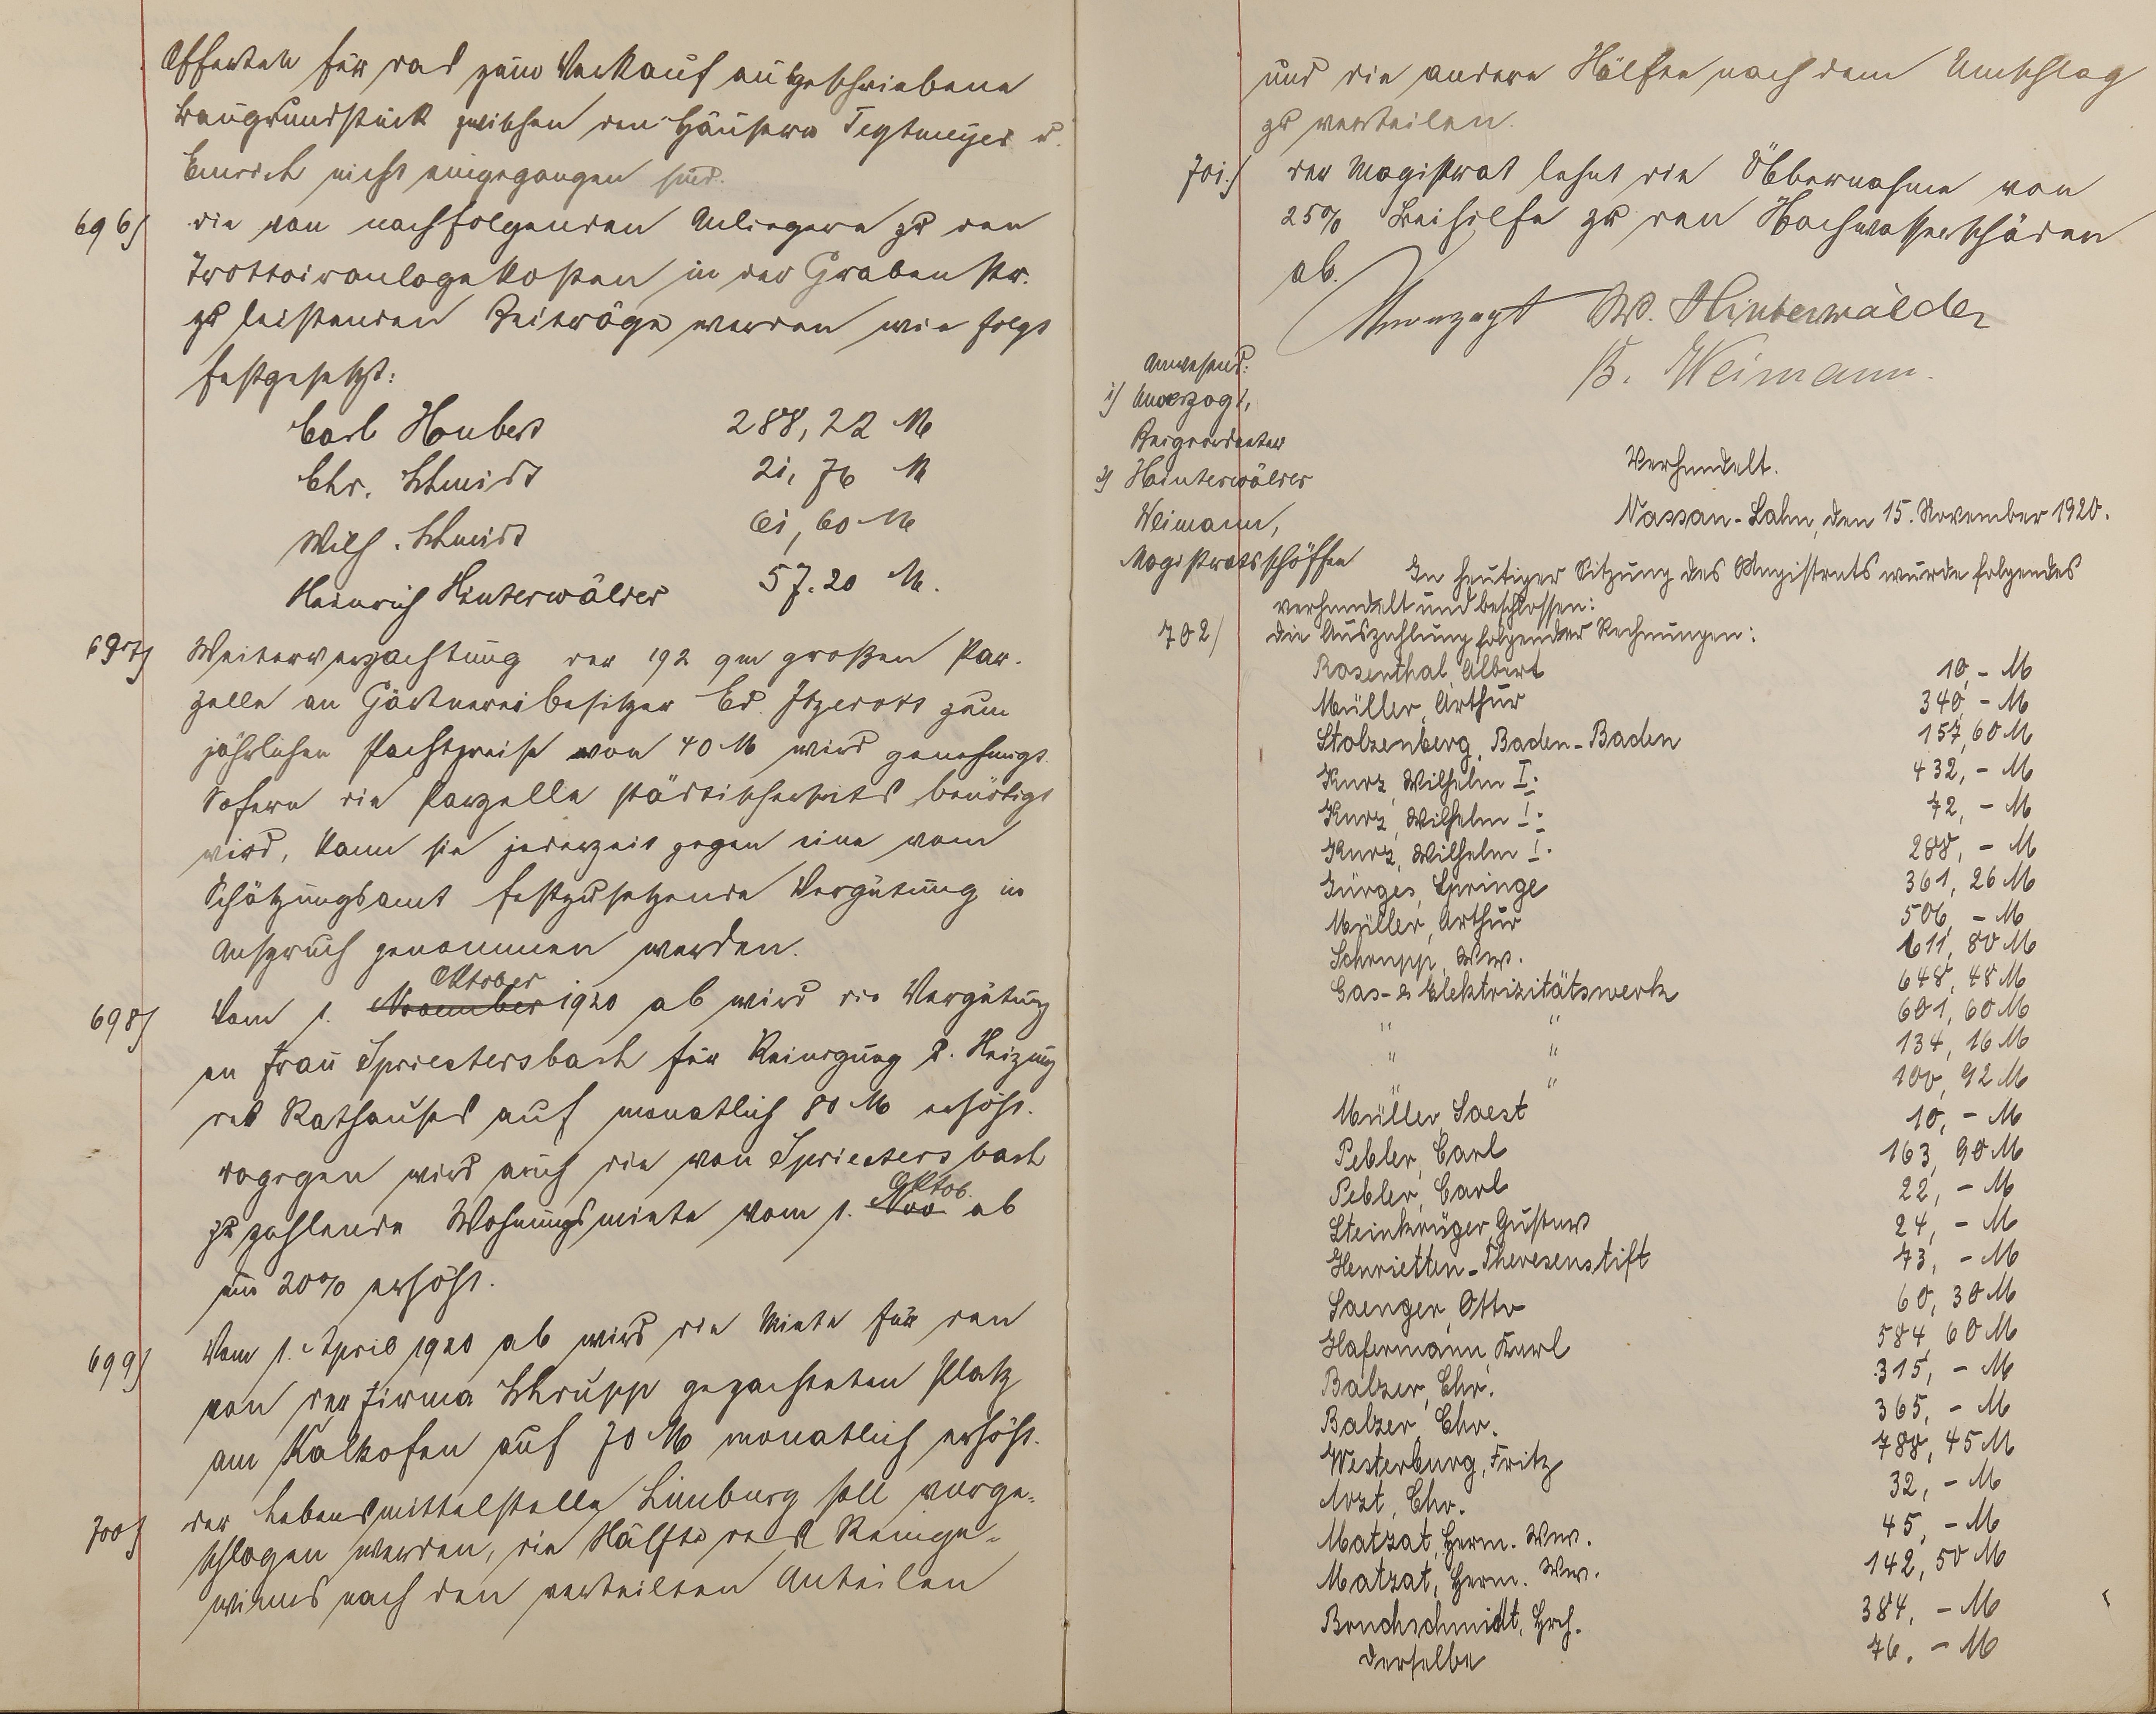 Offerten für das zum Verkauf ausgeschriebene
Baugrundstück zwischen den Häusern Tegtmeyer u.
Emrich nicht eingegangen sind.
696) die von nachfolgenden Anliegern zu den
Trottoiranlagekosten in der Grabenstr.
zu leistenden Beiträge werden wie folgt
festgesetzt:
Carl Haubert 288,22 M
Chr. Schmidt 21,76 M
Wilh. Schmidt 61,60 M
Heinrich Hinterwälder 57.20 M.
697) Weiterverpachtung der 192 qm großen Par-
zelle an Gärtnereibesitzer Ed. Itzerott zum
jährlichen Pachtpreise von 40 M wird genehmigt.
Sofern die Parzelle städtischerseits benötigt
wird, kann sie jederzeit gegen eine vom
Schätzungsamt festzusetzende Vergütung in
Anspruch genommen werden.
Oktober
698) Vom 1. November 1920 ab wird die Vergütung
an Frau Spriestersbach für Reinigung u. Heizung
des Rathauses auf monatlich 80 M erhöht.
dagegen wird auch die von Spriestersbach
Oktob.
zu zahlende Wohnungsmiete vom 1. Nov ab
um 20% erhöht.
699) Vom 1. April 1920 ab wird die Miete für den
von der Firma Schrupp gepachteten Platz
am Kalkofen auf 70 M monatlich erhöht.
700) der Lebensmittelstelle Limburg soll vorge-
schlagen werden, die Hälfte des Reinge-
winns nach den verteilten Anteilen
und die andere Hälfte nach dem Umschlag
zu verteilen.
701.) der Magistrat lehnt die Übernahme von
25% Beihilfe zu den Hochwasserschäden
ab.
Unverzagt W. Hinterwälder
Weimann.
Anwesend:
1) Unverzagt,
Beigeordneter
2) Hinterwälder
Weimann,
Magistratsschöffen
Verhandelt.
Nassau-Lahn, den 15. November 1920.
In heutiger Sitzung des Magistrats wurde folgendes
verhandelt und beschlossen:
702/ die Auszahlung folgender Rechnungen:
Rosenthal, Albert 10,- M
Müller, Arthur 340,- M
Stolzenberg, Baden-Baden 157,60 M
Kurz, Wilhelm I. 432,- M
Kurz, Wilhelm I. 72,- M
Kurz, Wilhelm I. 288,- M
Jürges, Springe 361,26 M
Müller, Arthur 506,- M
Schrupp, Ww. 611,80 M
Gas- & Elektrizitätswerk 648,48 M
" " 601,60 M
" " 134,16 M
" " 100,92 M
Müller, Soest 10,- M
Pebler, Carl 163,90 M
Pebler, Carl 22,- M
Steinkrüger, Gustav 24,- M
Henrietten-Theresenstift 73,- M
Saenger, Otto 60,30 M
Hafermann, Karl 584,60 M
Balzer, Chr. 315,- M
Balzer, Chr. 365,- M
Westerburg, Fritz 788,45 M
Arzt, Chr. 32,- M
Matzat, Herm. Ww. 45,- M
Matzat, Herm. Ww. 142,50 M
Bruchschmidt, Hrch. 384,- M
derselbe 76.- M